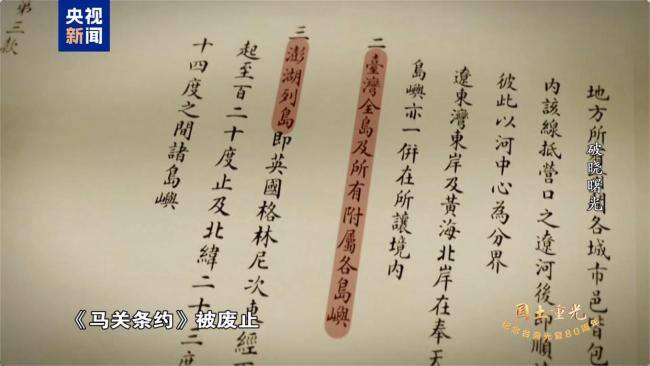 央视新闻
地方所 各城市邑皆包
內該線抵營口之遼河後即順
彼此以河中心為分界
遼東灣東岸及黃海北岸在奉天
島嶼亦一併在所讓境內
二 臺灣全島及所有附屬各島嶼
三 澎湖列島即英國格林尼次東經
起至百二十度止及北緯二十三度
十四度之間諸島嶼
第三款
破晓曙光
《马关条约》被废止
国土重光
纪念台湾光复80周年